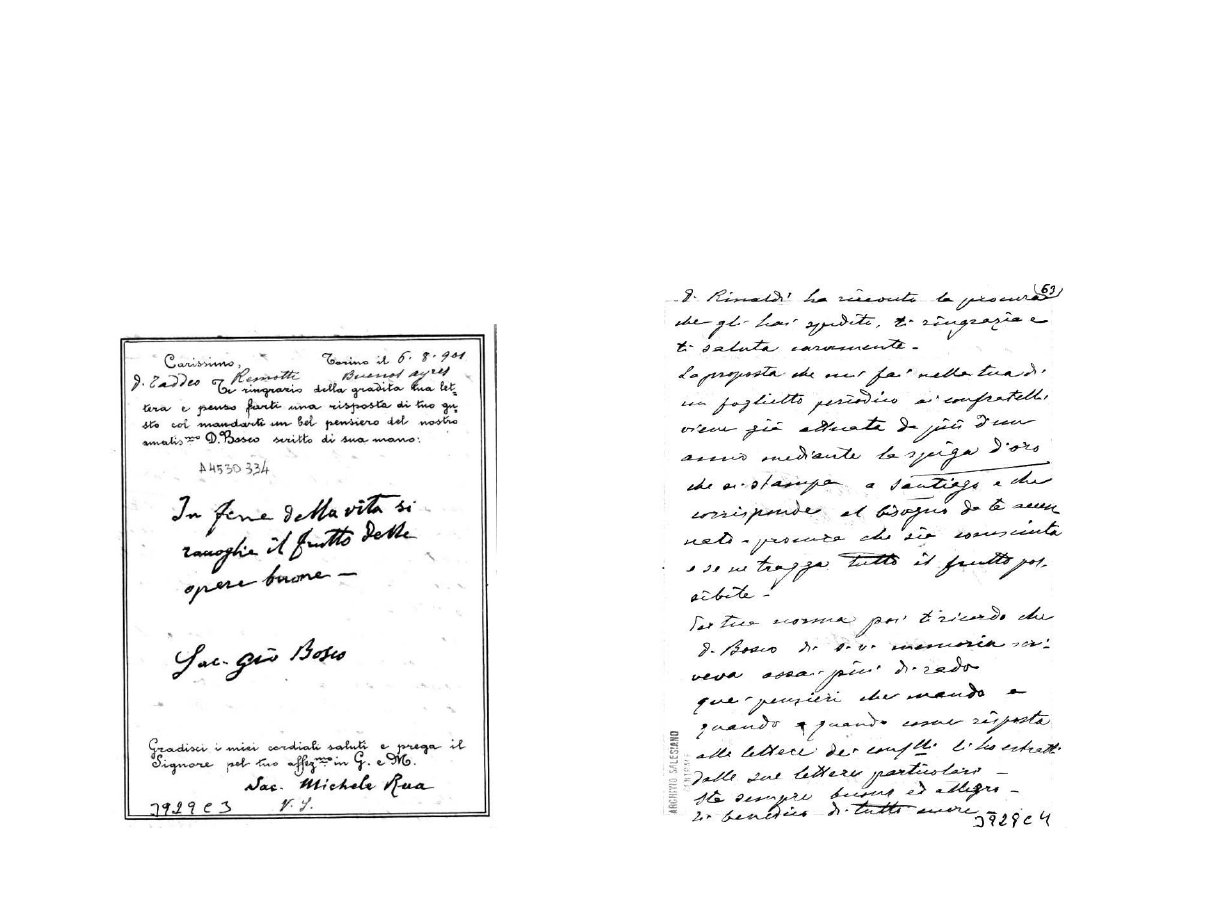 Carissimo, Torino il 6. 8. 901
D. Taddeo Remotti Buenos ayres
Ti ringrazio della gradita tua let-
tera e penso farti una risposta di tuo gu-
sto col mandarti un bel pensiero del nostro
amatis.mo D. Bosco scritto di sua mano:
A4530334
In fine della vita si
raccoglie il frutto delle
opere buone —
Sac. Gio Bosco
Gradisci i miei cordiali saluti e prega il
Signore pel tuo affez.mo in G. e M.
Sac. Michele Rua
V. J.
3929C3
63
D. Rinaldi ha ricevuto la procura
che gli hai spedito, ti ringrazia e
ti saluta caramente -
La proposta che mi fai nella tua di
un foglietto periodico ai confratelli
viene già attuata da più d'un
anno mediante la spiga d'oro
che si stampa a Santiago e che
corrisponde al bisogno da te accen
nato - procura che sia conosciuta
e se ne tragga tutto il frutto pos.
sibile -
Per tua norma poi ti ricordo che
D. Bosco di s. v. memoria scri-
veva assai più di rado
quei pensieri che mando a
quando a quando come risposta
alle lettere dei conflli li ho estratti
dalle sue lettere particolari -
Sta sempre buono ed allegro -
Ti benedico di tutto cuore
3929C4
ARCHIVIO SALESIANO
CENTRALE